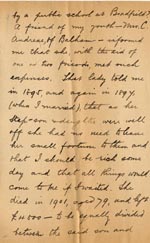 by a public school at Bradfield?
A friend of my youth – Mrs. C.
Andrews, of Balham – informed
me that she with the aid of
one or two friends met such
expenses. That lady told me
in 1895, and again in 1897,
(who I married), that as her
step-son & daughter were well
off she had no need to leave
her small fortune to them and
that I should be rich some
day and that all things would
come to me if I waited. She
died in 1901, aged 79, and left
£4000 – to be equally divided
between the said son and